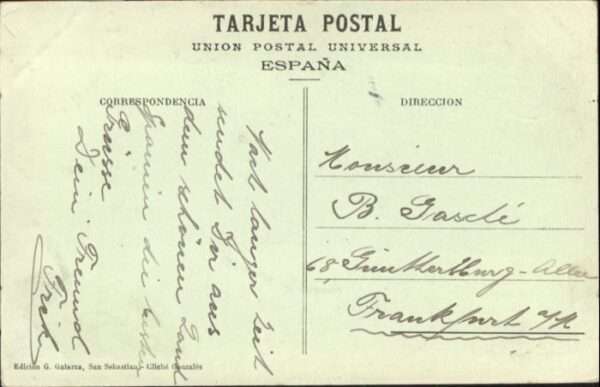 TARJETA POSTAL
UNION POSTAL UNIVERSAL
ESPAÑA
CORRESPONDENCIA
DIRECCION
Nach langer Zeit
sendet Dir aus
dem schönen Land
Spanien die besten
Grüsse
Dein Freund
Monsieur
B.
68, Günthersburg-Allee
Frankfurt a/M
Edición G. Galarza, San Sebastian.- Cliché González